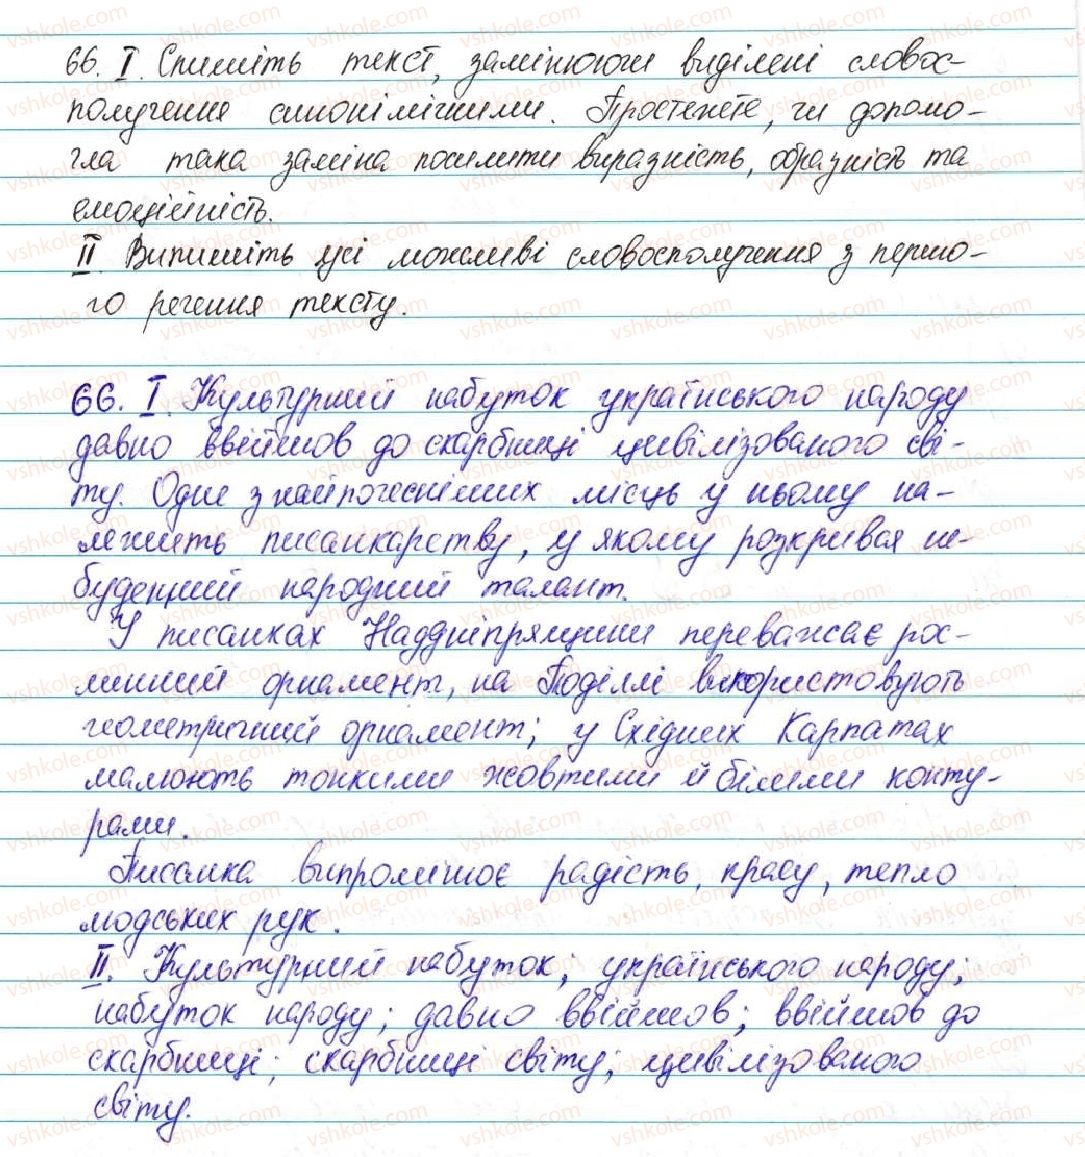 66. I. Спишіть текст, замінюючи виділені словос-
получення синонімічними. Простежте, чи допомо-
гла така заміна посилити виразність, образність та
емоційність.
II. Випишіть усі можливі словосполучення з першо-
го речення тексту.
66. I. Культурний набуток українського народу
давно ввійшов до скарбниці цивілізованого сві-
ту. Одне з найпочесніших місць у ньому на-
лежить писанкарству, у якому розкривая не-
буденний народний талант.
У писанках Наддніпрянщини переважає рос-
линний орнамент, на Поділлі використовують
геометричний орнамент; у Східних Карпатах
малюють тонкими жовтими й білими конту-
рами.
Писанка випромінює радість, красу, тепло
людських рук.
II. Культурний набуток; українського народу;
набуток народу; давно ввійшов; ввійшов до
скарбниці; скарбниці світу; цивілізованого
світу.